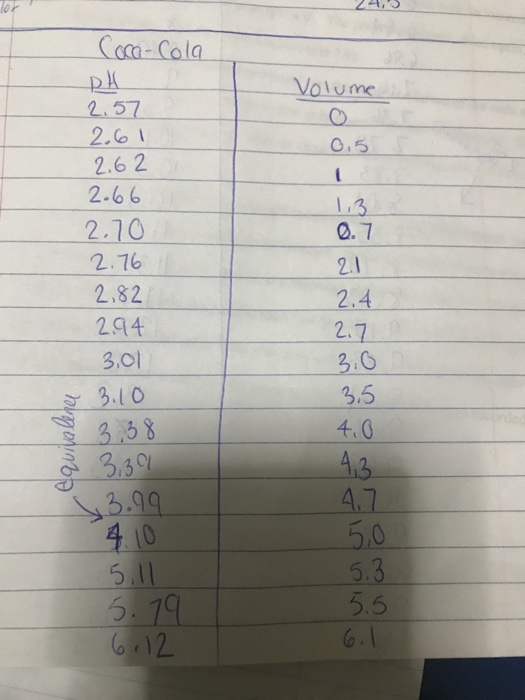 24.5
Coca-Cola
pH Volume
2.57 0
2.61 0.5
2.62 1
2.66 1.3
2.70 0.7
2.76 2.1
2.82 2.4
2.94 2.7
3.01 3.0
3.10 3.5
3.38 4.0
3.39 4.3
3.99 4.7
4.10 5.0
5.11 5.3
5.79 5.5
6.12 6.1
equivalence